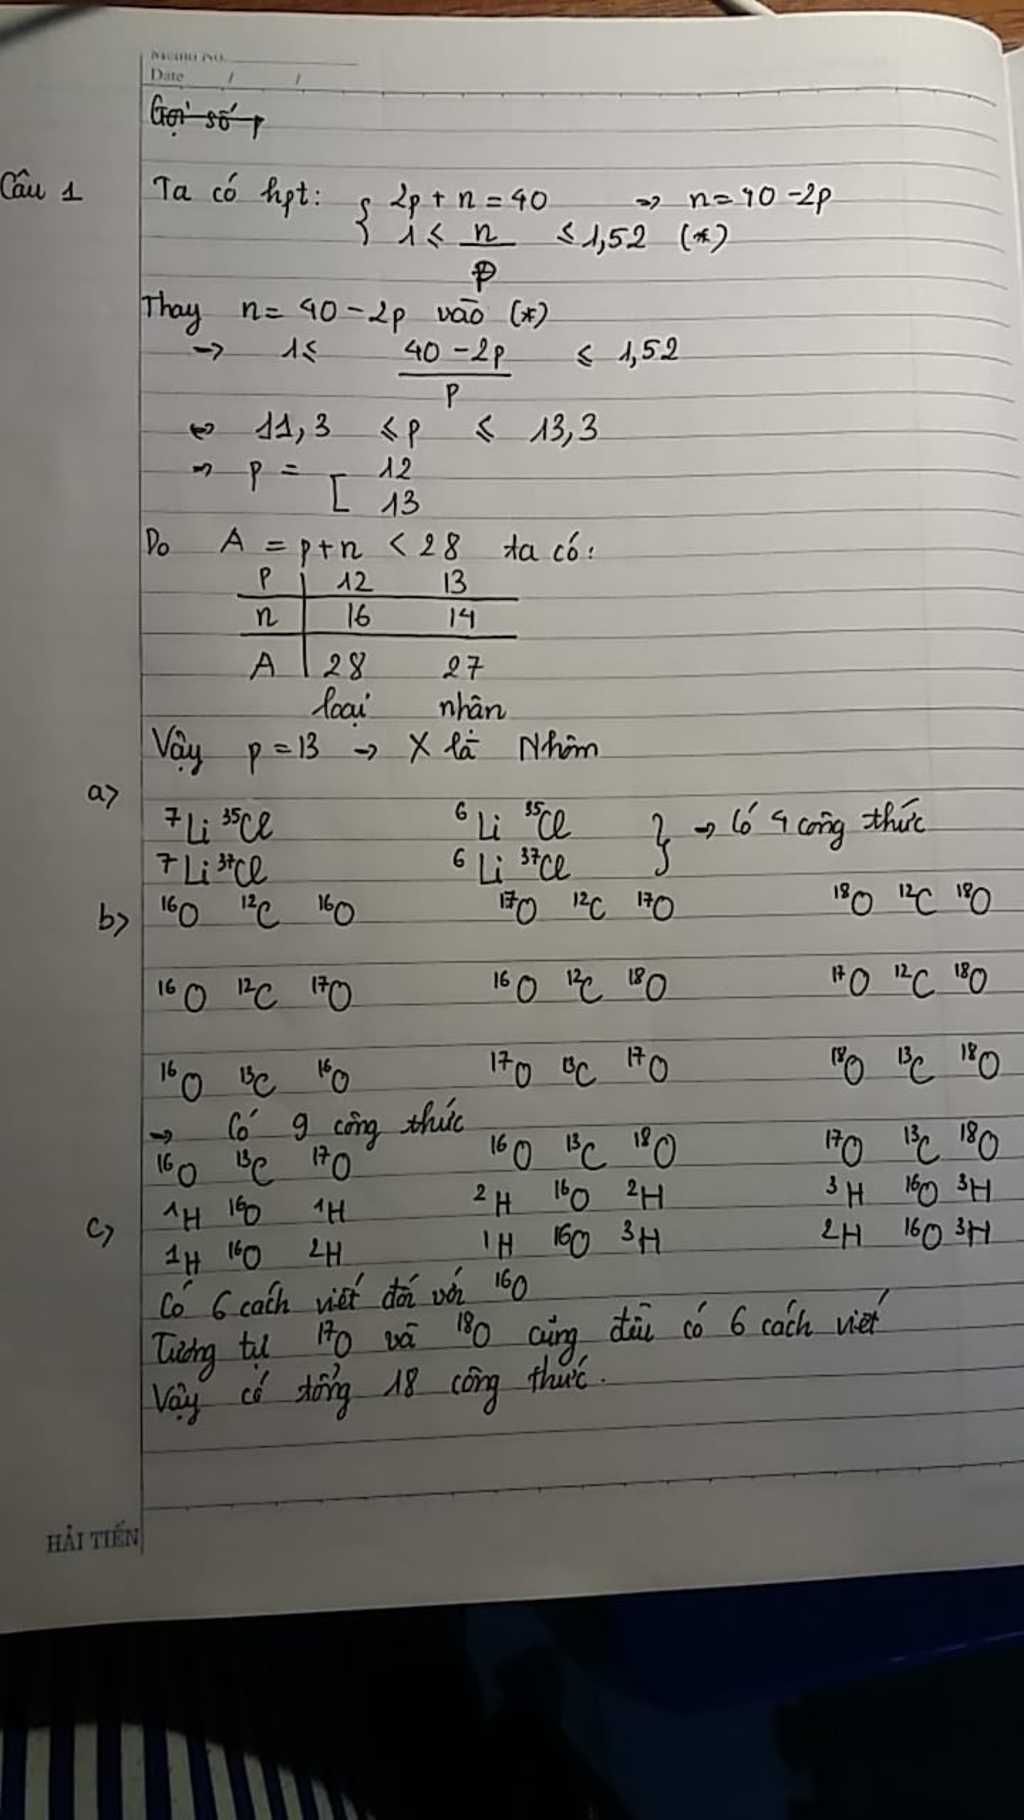 MEMO NO.
Date / /
Gọi số p
Câu 1 Ta có hpt: { 2p + n = 40 → n = 40 - 2p
1 ≤ n/p ≤ 1,52 (*)
Thay n = 40 - 2p vào (*)
→ 1 ≤ (40 - 2p)/p ≤ 1,52
⇔ 11,3 ≤ p ≤ 13,3
⇒ p = [ 12
13
Do A = p + n < 28 ta có:
P | 12 13
n | 16 14
A | 28 27
loại nhân
Vậy p = 13 → X là Nhôm
a> ⁷Li ³⁵Cl ⁶Li ³⁵Cl } → Có 4 công thức
⁷Li ³⁷Cl ⁶Li ³⁷Cl
b> ¹⁶O ¹²C ¹⁶O ¹⁷O ¹²C ¹⁷O ¹⁸O ¹²C ¹⁸O
¹⁶O ¹²C ¹⁷O ¹⁶O ¹²C ¹⁸O ¹⁷O ¹²C ¹⁸O
¹⁶O ¹³C ¹⁶O ¹⁷O ¹³C ¹⁷O ¹⁸O ¹³C ¹⁸O
→ Có 9 công thức
¹⁶O ¹³C ¹⁷O ¹⁶O ¹³C ¹⁸O ¹⁷O ¹³C ¹⁸O
c> ¹H ¹⁶O ¹H ²H ¹⁶O ²H ³H ¹⁶O ³H
¹H ¹⁶O ²H ¹H ¹⁶O ³H ²H ¹⁶O ³H
Có 6 cách viết đối với ¹⁶O
Tương tự ¹⁷O và ¹⁸O cũng đều có 6 cách viết
Vậy có tổng 18 công thức.
HẢI TIẾN